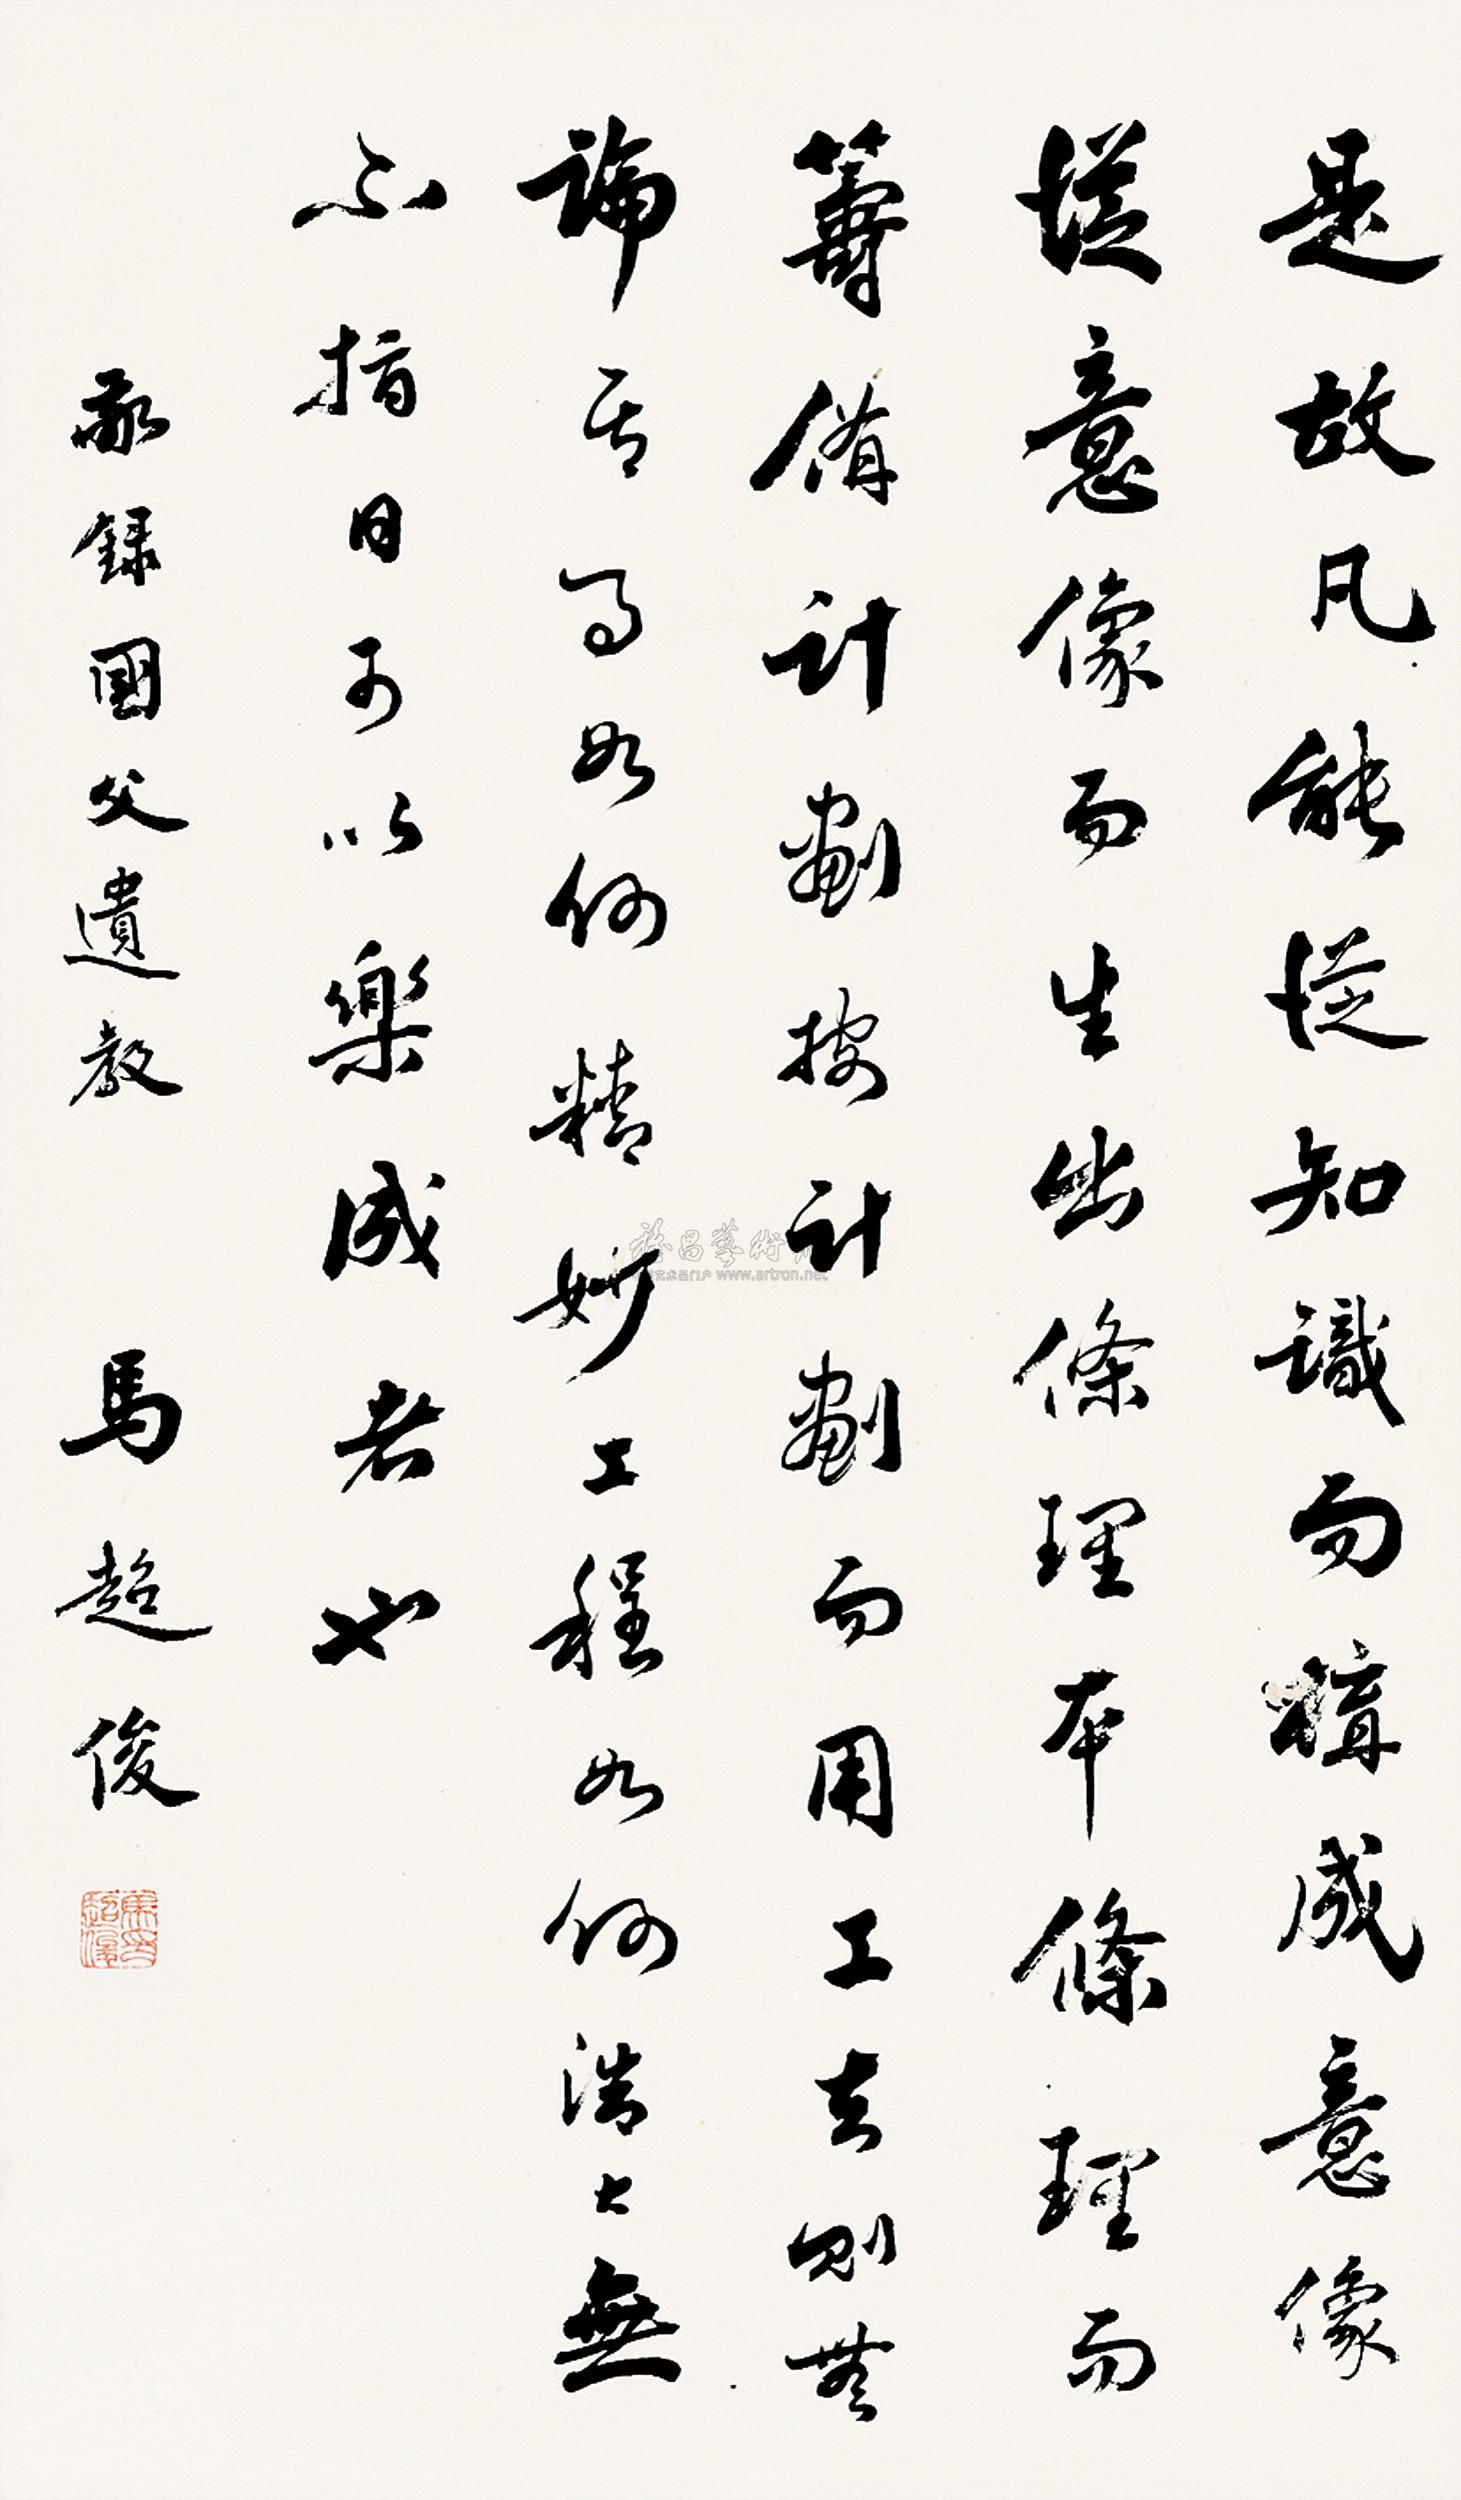 是故凡能從知識而構成意像
從意像而生出條理本條理而
籌備計劃按計劃而用工夫則無
論其事如何精妙工程如何浩大無
不指日可以樂成者也
敬錄國父遺教 馬超俊
馬印超俊
雅昌藝術
艺术品门户 www.artron.net